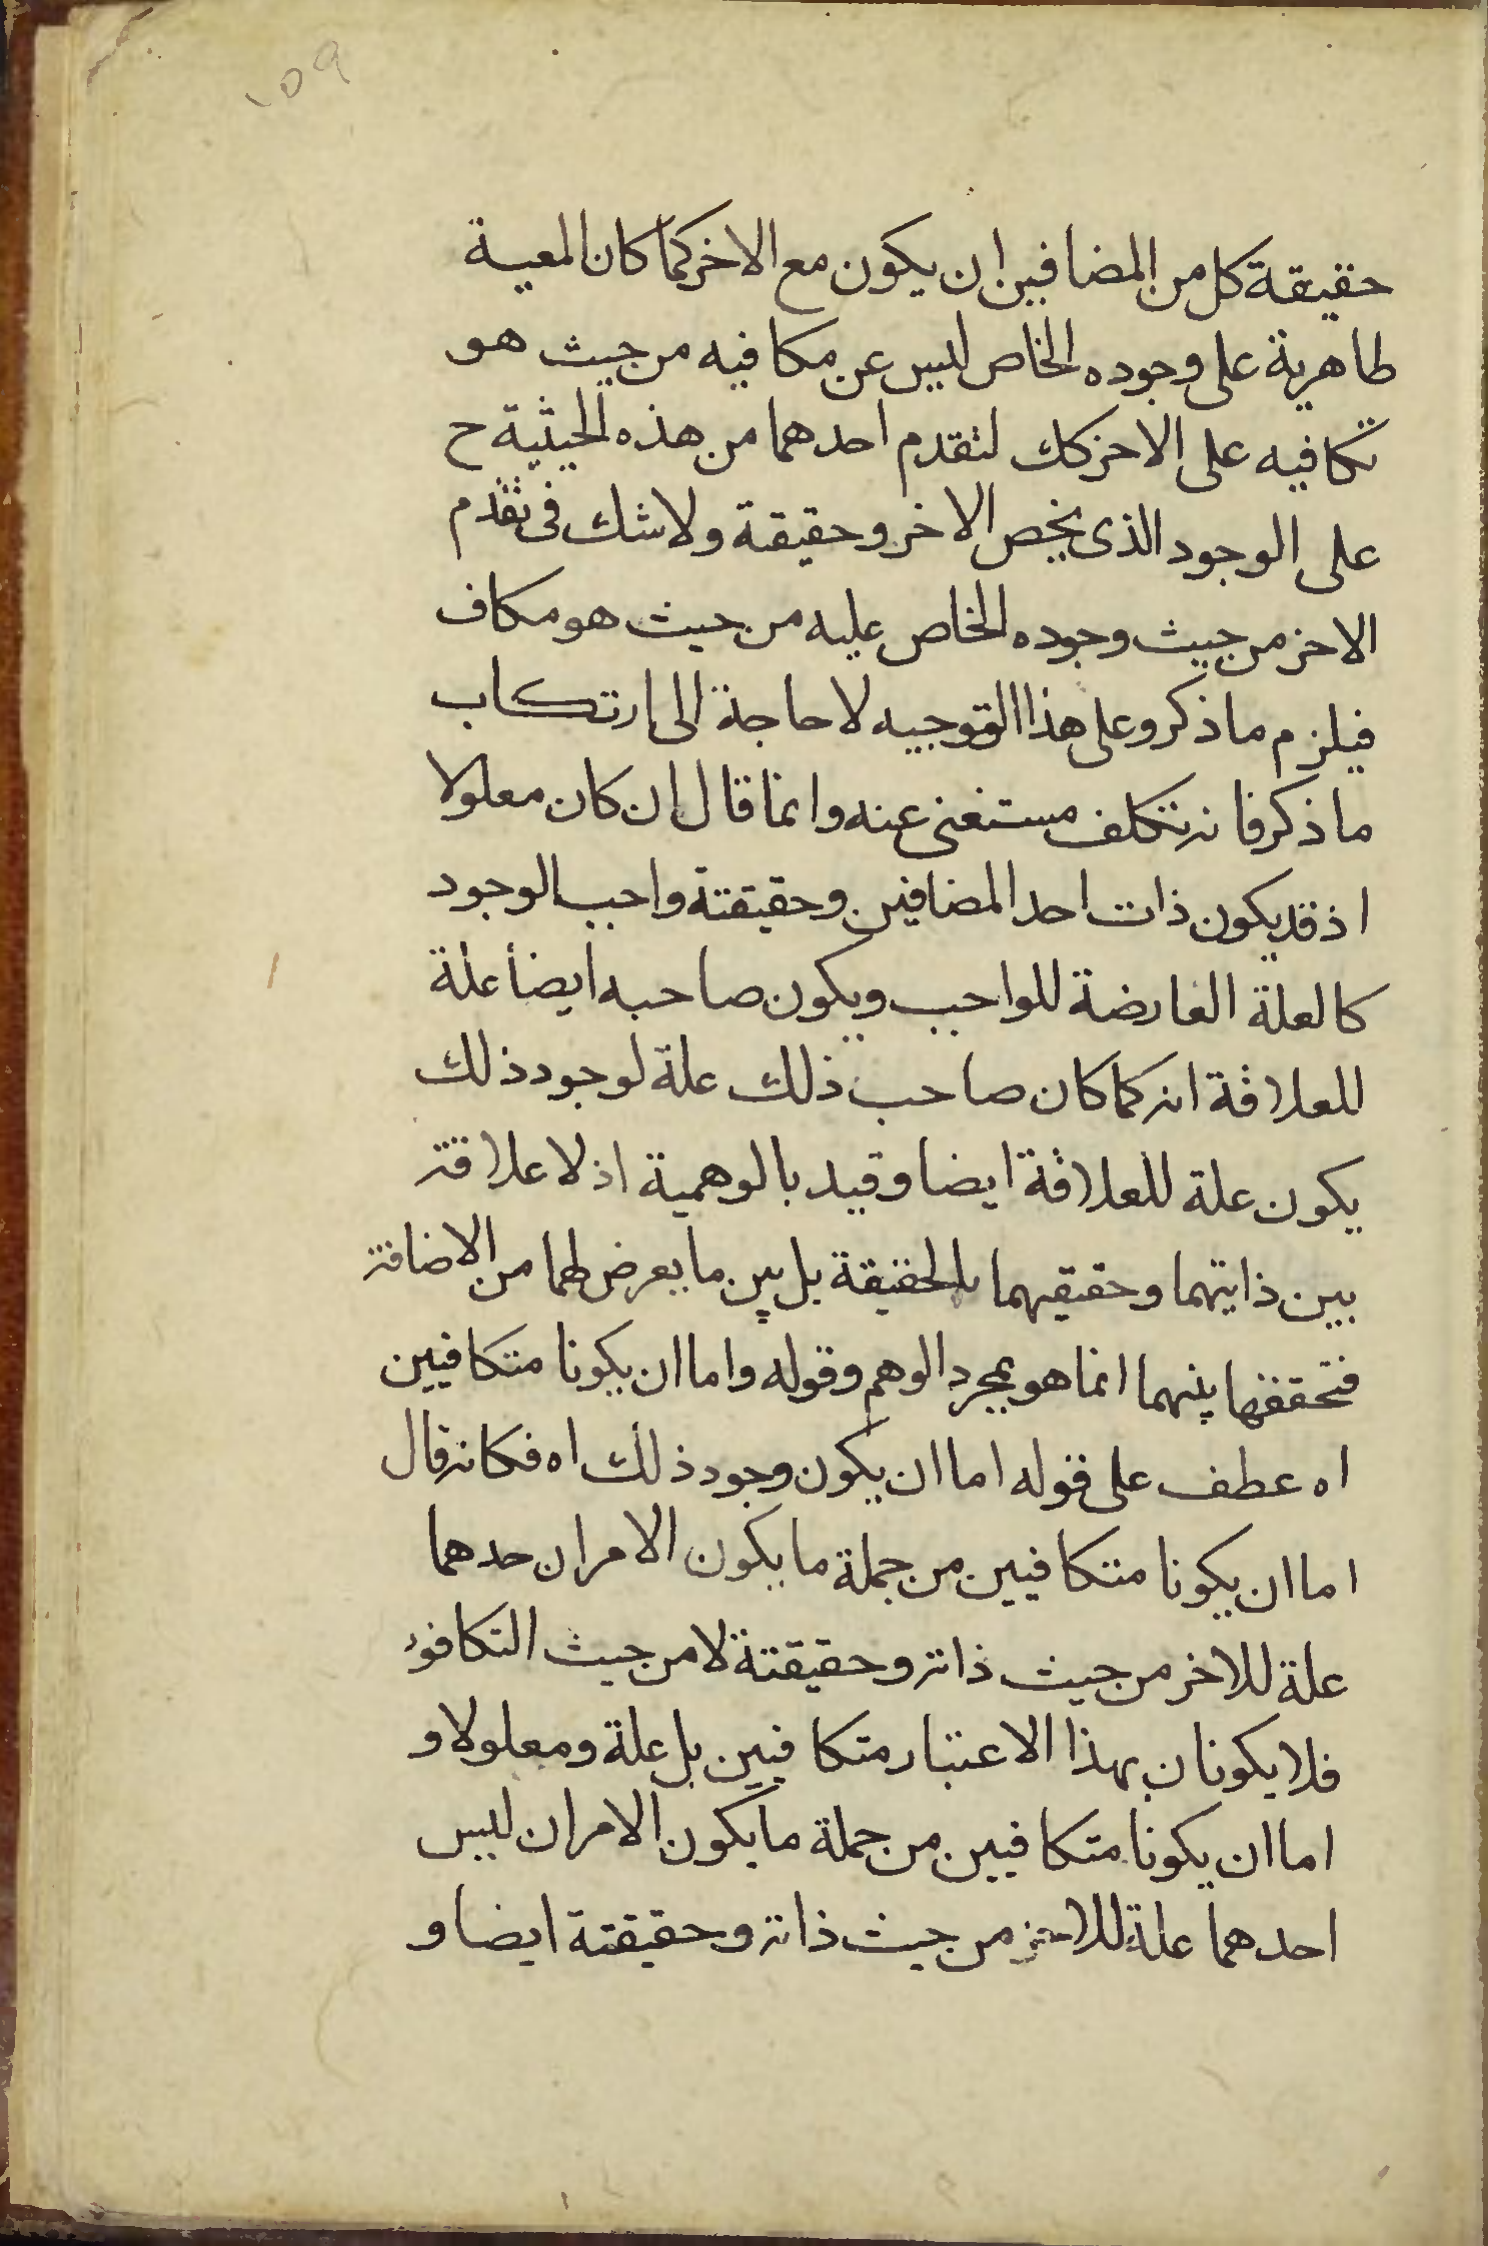 ١٥٩
حقيقة كل من المضافين ان يكون مع الاخر كما كان المعية
طاهرية على وجوده الخاص ليس عن مكافيه من حيث هو
تكافيه على الاخر كك لتقدم احدهما من هذه الحيثية ح
على الوجود الذى يخص الاخر وحقيقة ولا شك فى تقدم
الاخر من حيث وجوده الخاص عليه من حيث هو مكاف
فيلزم ما ذكر وعلى هذا التوجيه لا حاجة الى ارتكاب
ما ذكر فانه تكلف مستغنى عنه وانما قال ان كان معلولا
اذ قد يكون ذات احد المضافين وحقيقته واجب الوجود
كالعلة العارضة للواجب ويكون صاحبه ايضاً علة
للعلاقة انه كما كان صاحب ذلك علة لوجود ذلك
يكون علة للعلاقة ايضا وقيد بالوهمية اذ لا علاقة
بين ذاتيهما وحقيقيهما بالحقيقة بل بين ما يعرض لهما من الاضافة
فتحققها بينهما انما هو بمجرد الوهم وقوله واما ان يكونا متكافيين
اه عطف على قوله اما ان يكون وجود ذلك اه فكانه قال
اما ان يكونا متكافيين من جملة ما يكون الامران حدهما
علة للاخر من حيث ذاته وحقيقته لا من حيث التكافوء
فلا يكونان بهذا الاعتبار متكافيين بل علة ومعلولا و
اما ان يكونا متكافيين من جملة ما يكون الامران ليس
احدهما علة للاخر من حيث ذاته وحقيقته ايضا و